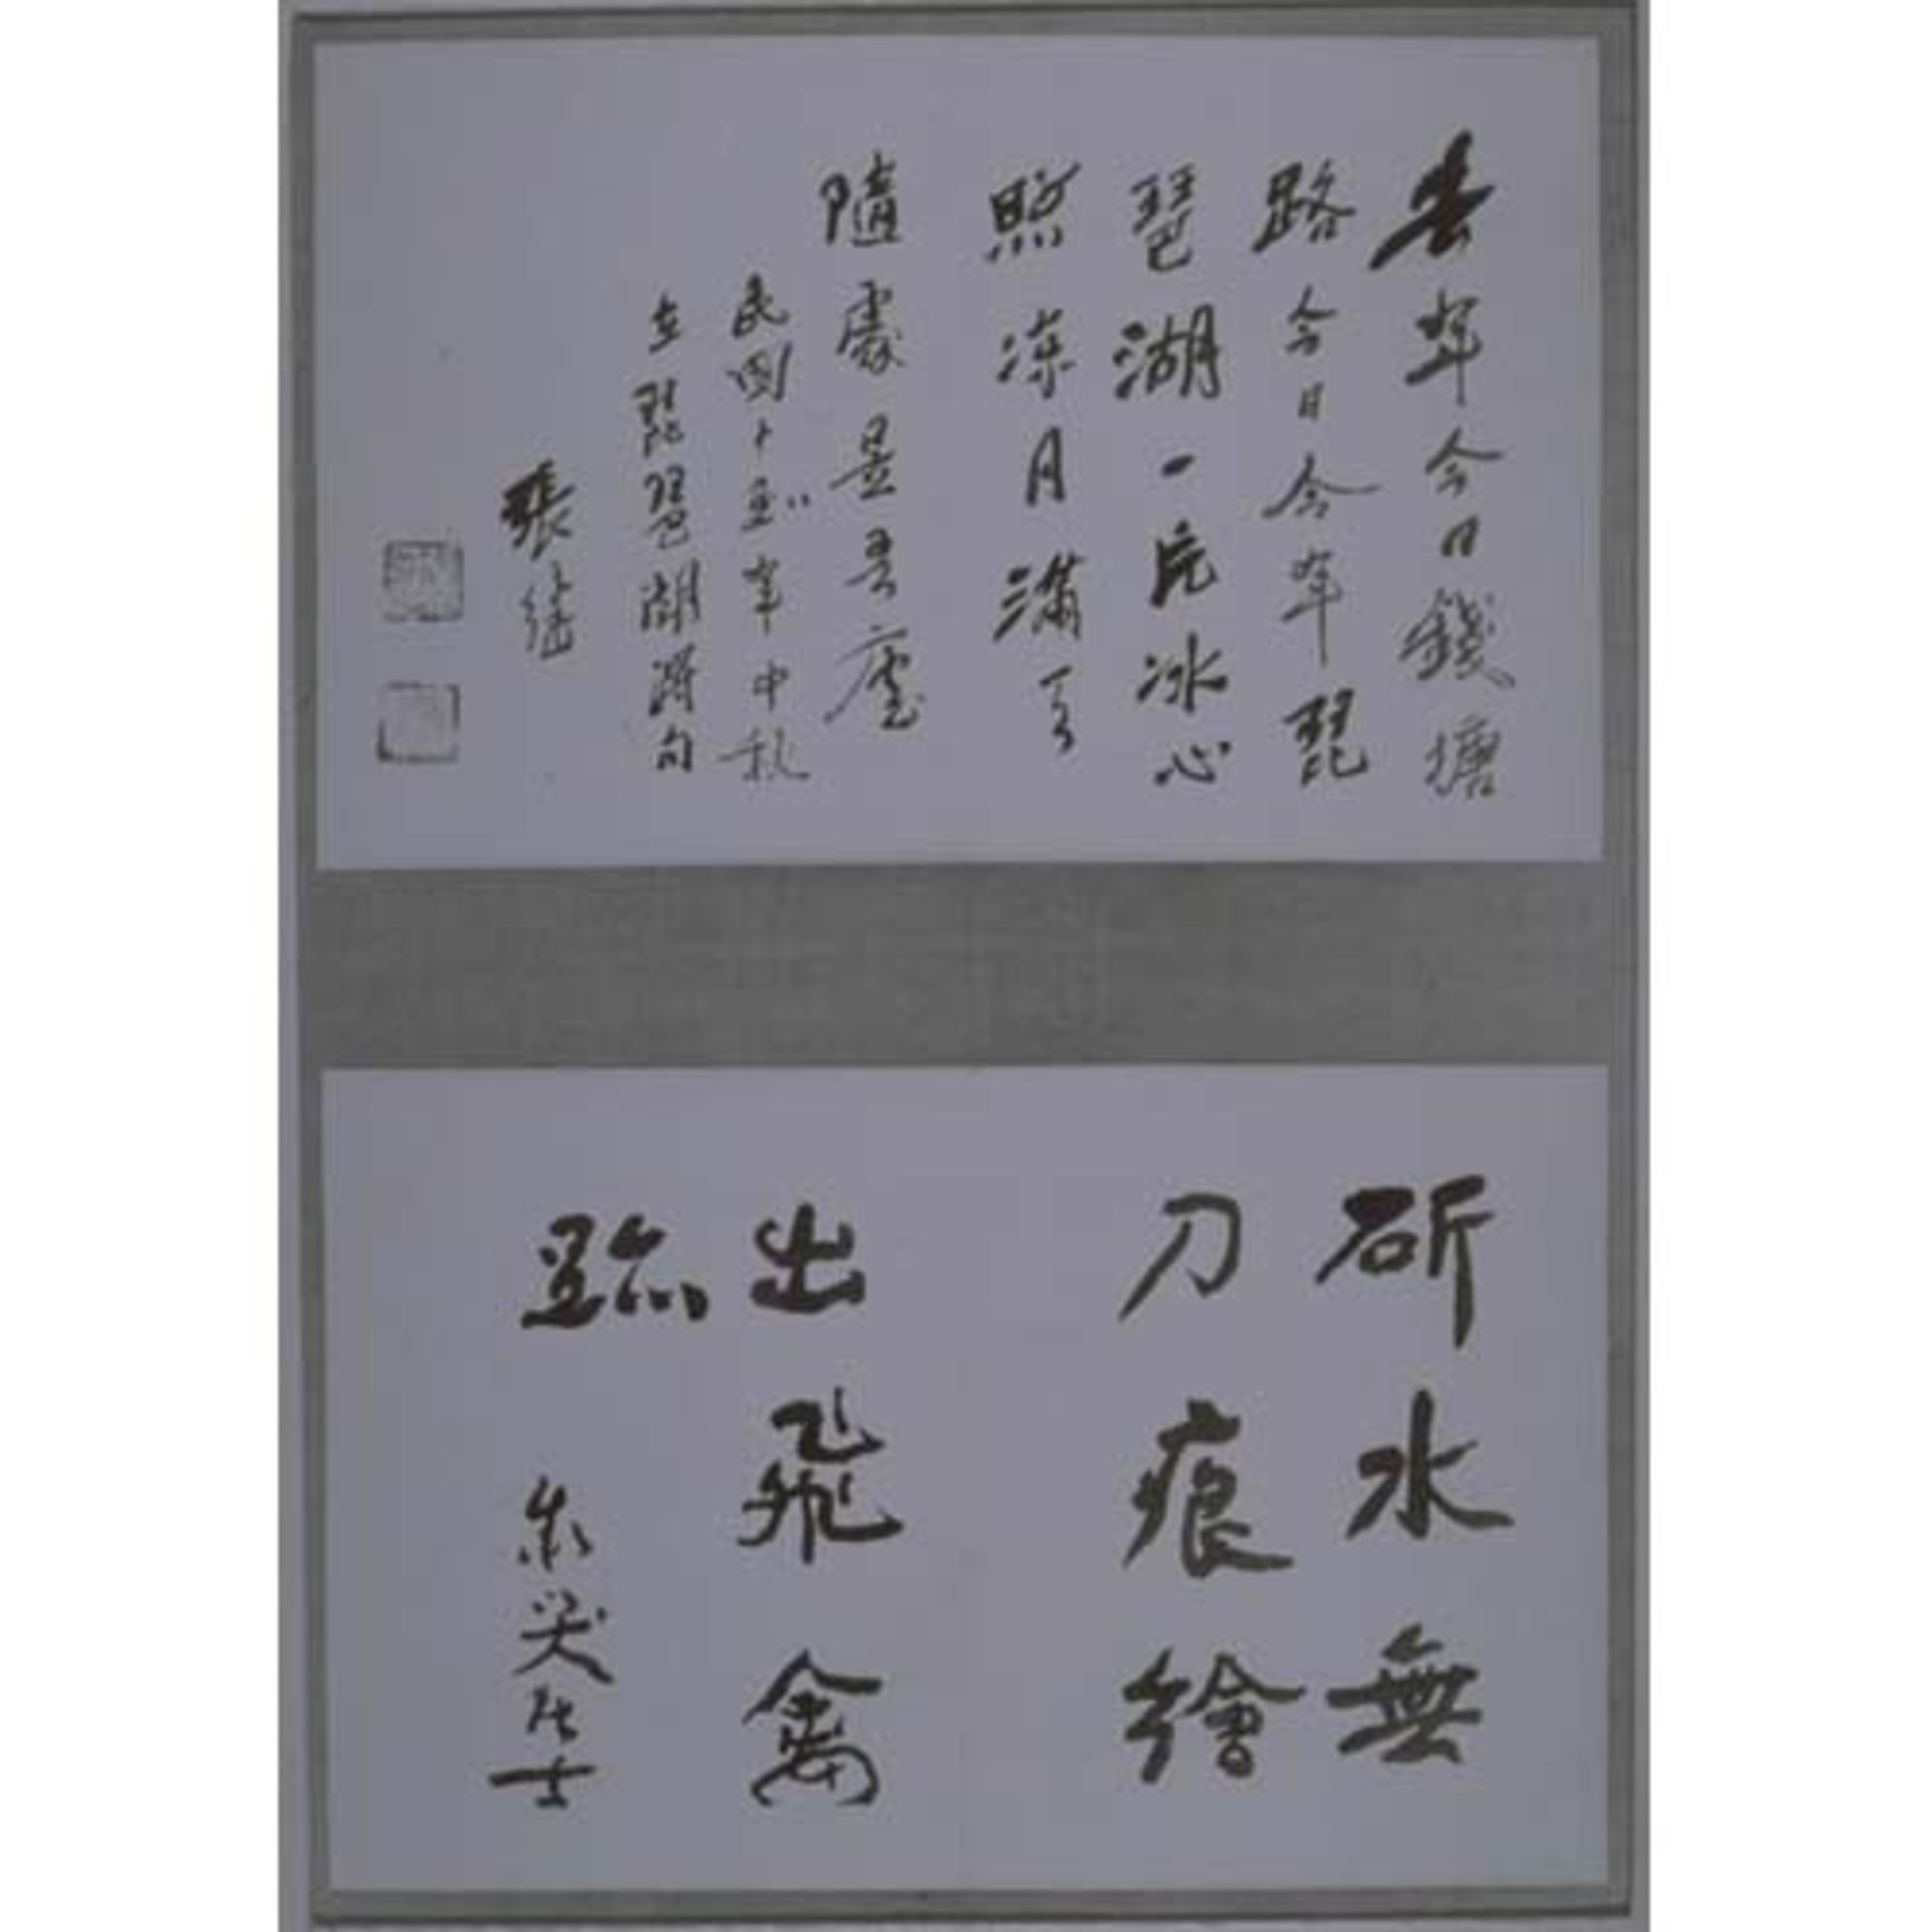 去年今日錢塘
路今日今年琵
琶湖一片冰心
照凉月滿天
隨處是吾廬
民國十五年中秋
在琵琶湖濱句
張繼
斫水無
刀痕繪
出飛禽
跡
哭居士